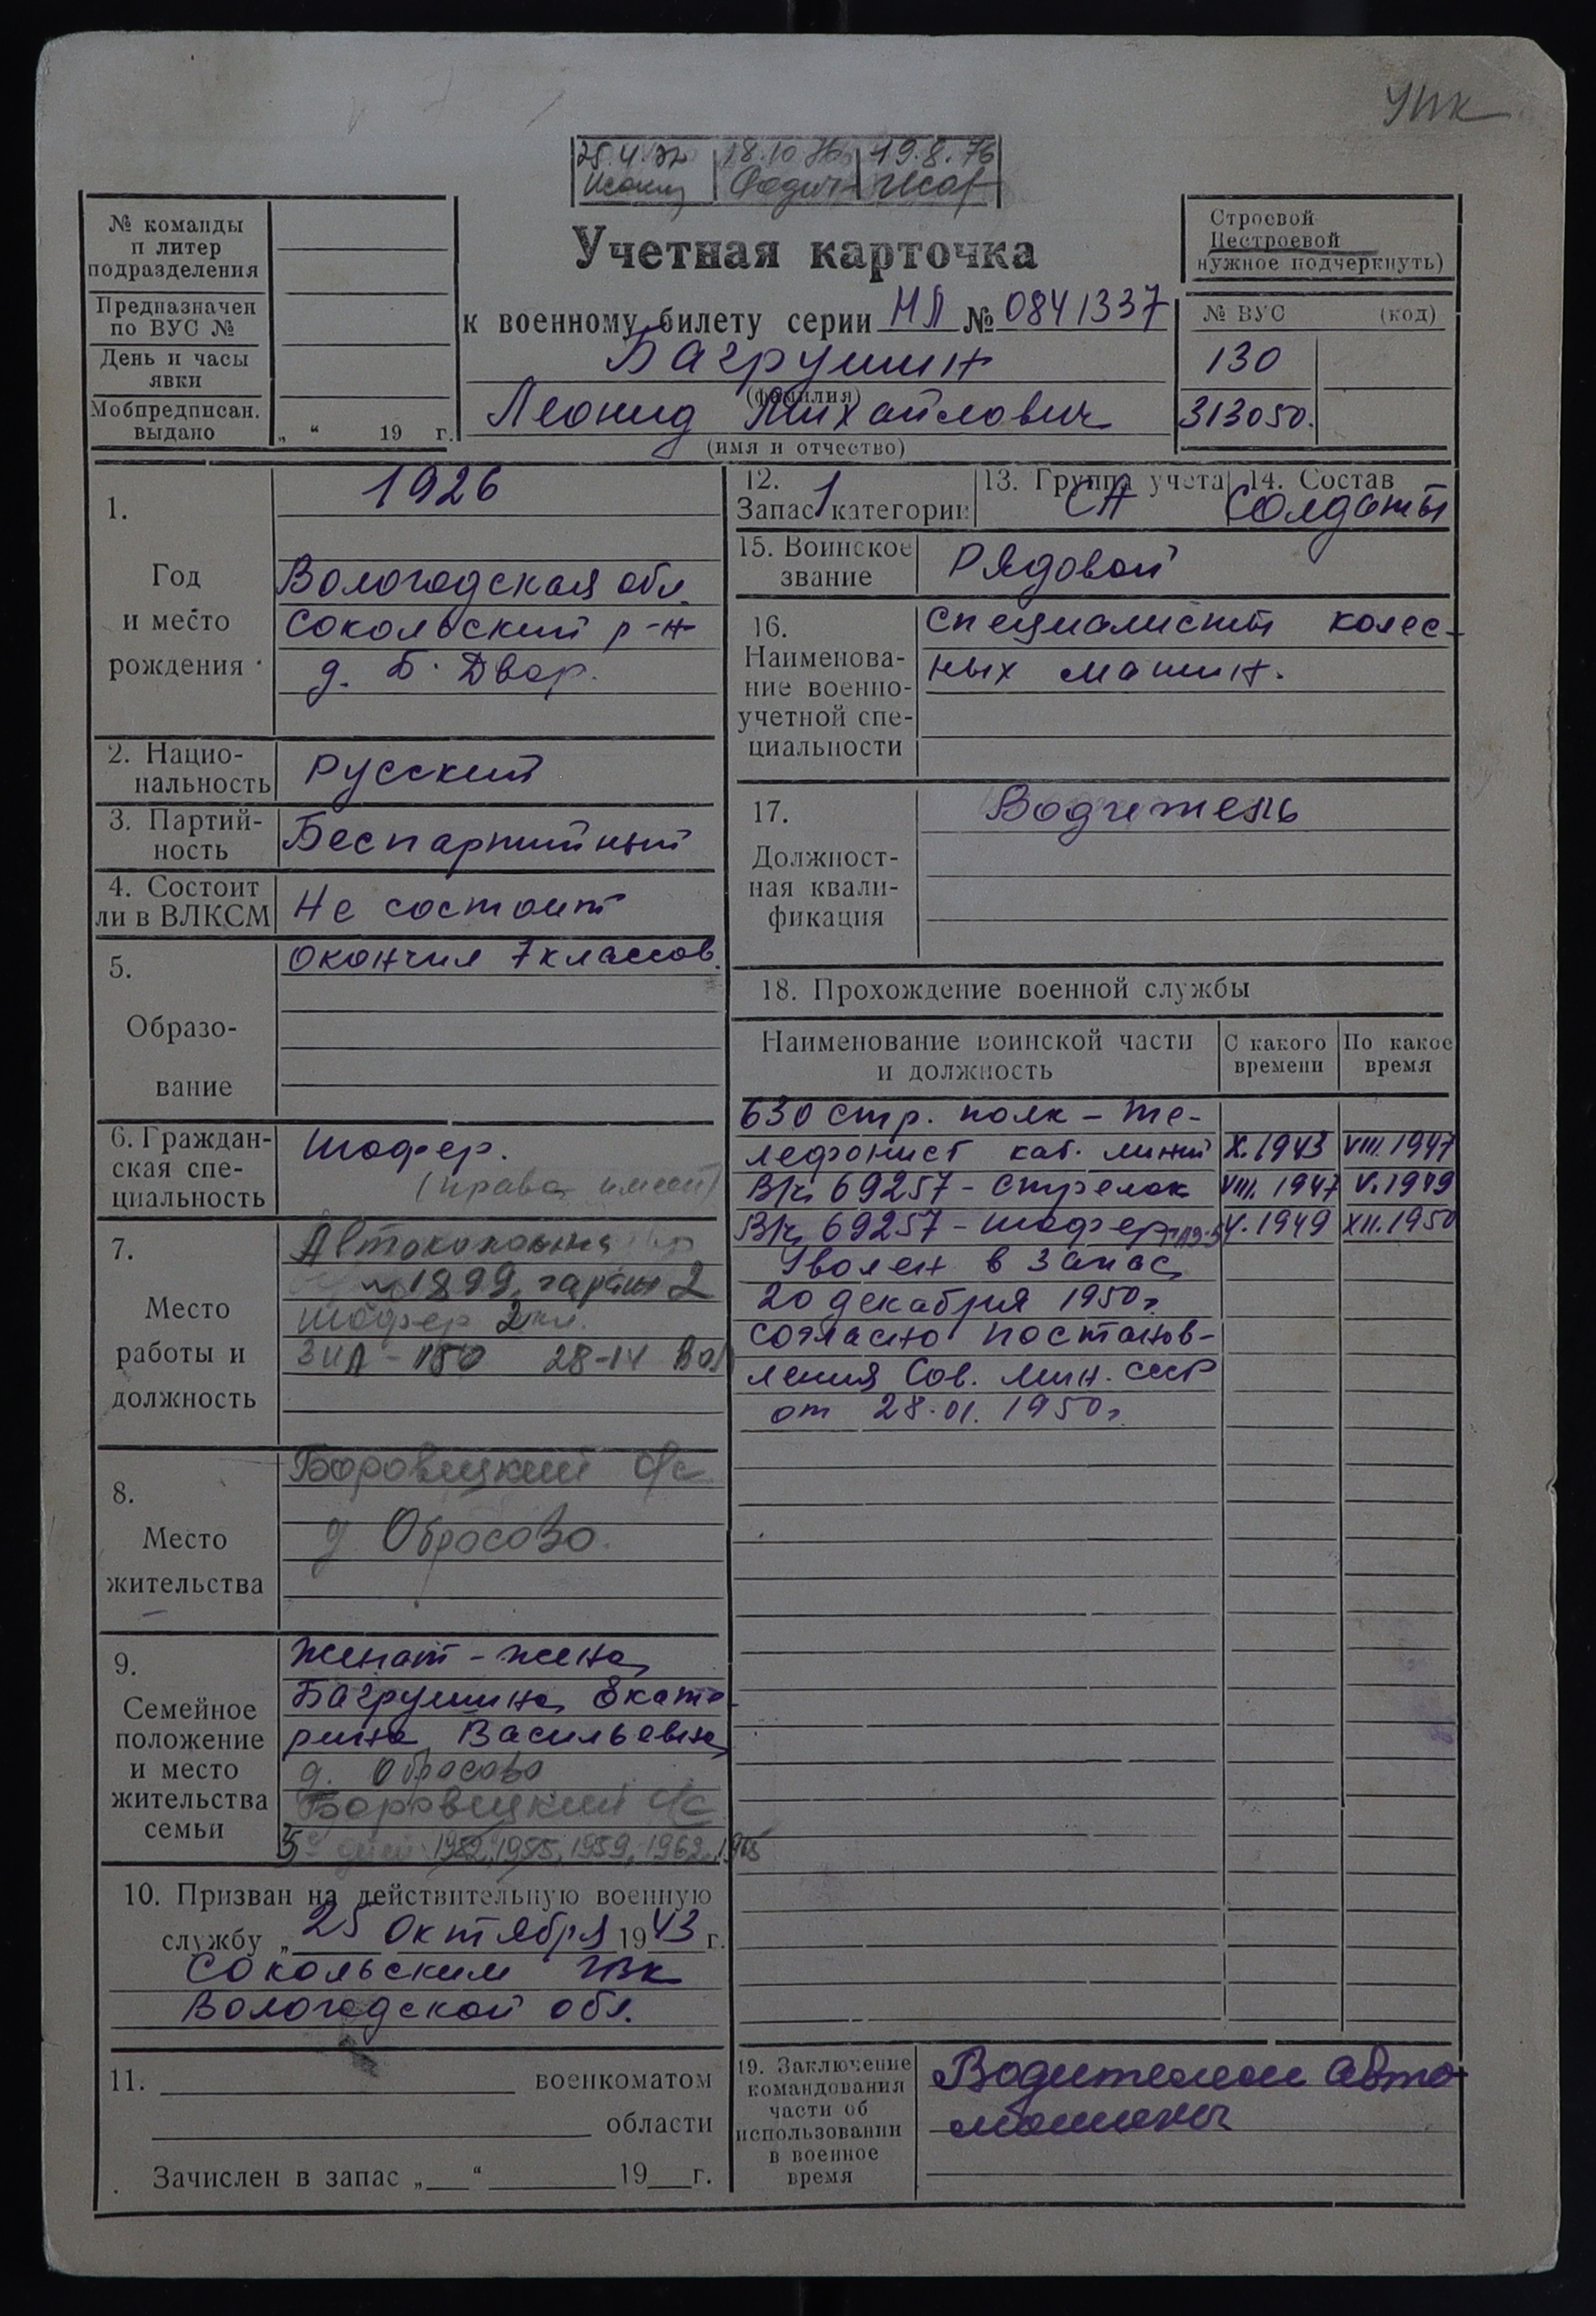 УПК
25.4.72 18.10.76 19.8.76
№ команды
и литер
подразделения
Предназначен
по ВУС №
День и часы
явки
Мобпредписан.
выдано
„ “ 19 г.
Учетная карточка
к военному билету серии НЛ № 0841337
Багрушин
(фамилия)
Леонид Михайлович
(имя и отчество)
Строевой
Нестроевой
нужное подчеркнуть)
№ ВУС (код)
130
313050.
1.
Год
и место
рождения
1926
Вологодская обл.
Сокольский р-н
д. Б. Двор.
2. Нацио-
нальность
Русский
3. Партий-
ность
Беспартийный
4. Состоит
ли в ВЛКСМ
Не состоит
5.
Образо-
вание
Окончил 7 классов.
6. Граждан-
ская спе-
циальность
Шофер.
(права имеет)
7.
Место
работы и
должность
Автоколонна
№ 1899, гараж 2
шофер 2 кл.
ЗИЛ-150 28-14 ВОЛ
8.
Место
жительства
Боровецкий с/с
д. Обросово.
9.
Семейное
положение
и место
жительства
семьи
Женат - жена
Багрушина Екате-
рина Васильевна
д. Обросово
Боровецкий с/с
5 детей 1952, 1955, 1959, 1962, 1965
10. Призван на действительную военную
службу „ 25 Октября 1943 г.
Сокольским РВК
Вологодской обл.
11. военкоматом
области
Зачислен в запас „ “ 19 г.
12.
Запас 1 категории
13. Группа учета
СА
14. Состав
Солдаты
15. Воинское
звание
Рядовой
16.
Наименова-
ние военно-
учетной спе-
циальности
Специалист колес-
ных машин.
17.
Должност-
ная квали-
фикация
Водитель
18. Прохождение военной службы
Наименование воинской части
и должность
С какого
времени
По какое
время
630 стр. полк - те-
лефонист каб. линий X.1943 VIII.1947
В/ч 69257 - стрелок VIII.1947 V.1949
В/ч 69257 - шофер V.1949 XII.1950
Уволен в запас
20 декабря 1950г.
согласно постанов-
ления Сов. Мин. СССР
от 28.01.1950г.
19. Заключение
командования
части об
использовании
в военное
время
Водителем авто-
машины